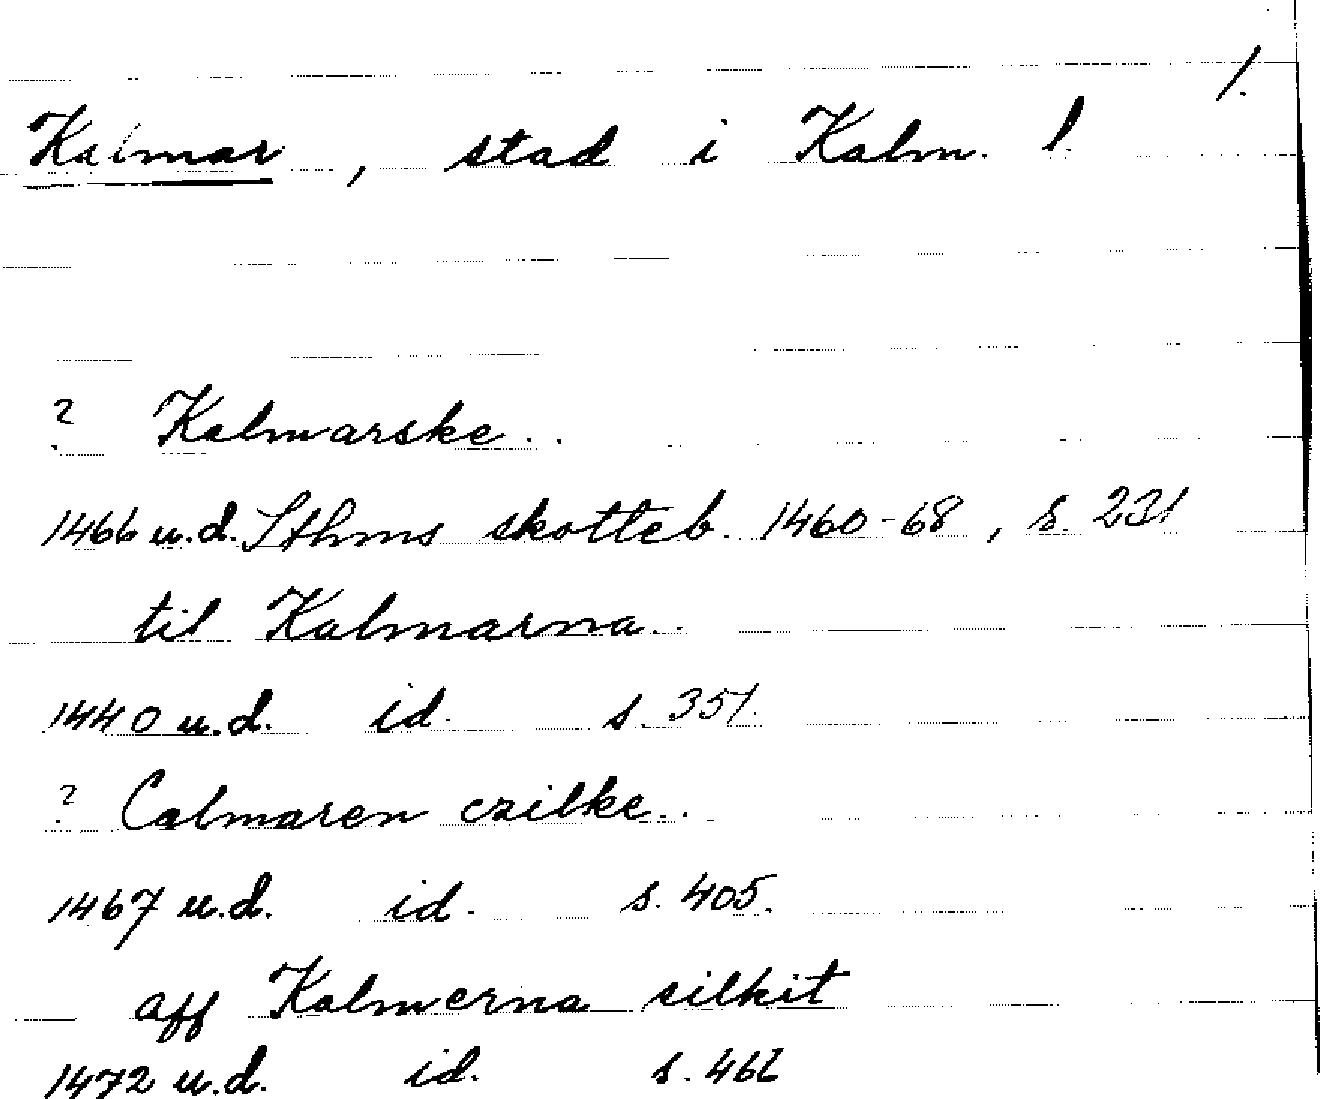 1.
Kalmar, stad i Kalm. l.
? Kalmarske..
1466 u.d. Sthms skotteb. 1460-68, s. 231
til Kalmarna..
1440 u.d. id. s. 351.
? Calmaren czilke..
1467 u.d. id. s. 405.
aff Kalmerna silkit
1472 u.d. id. s.